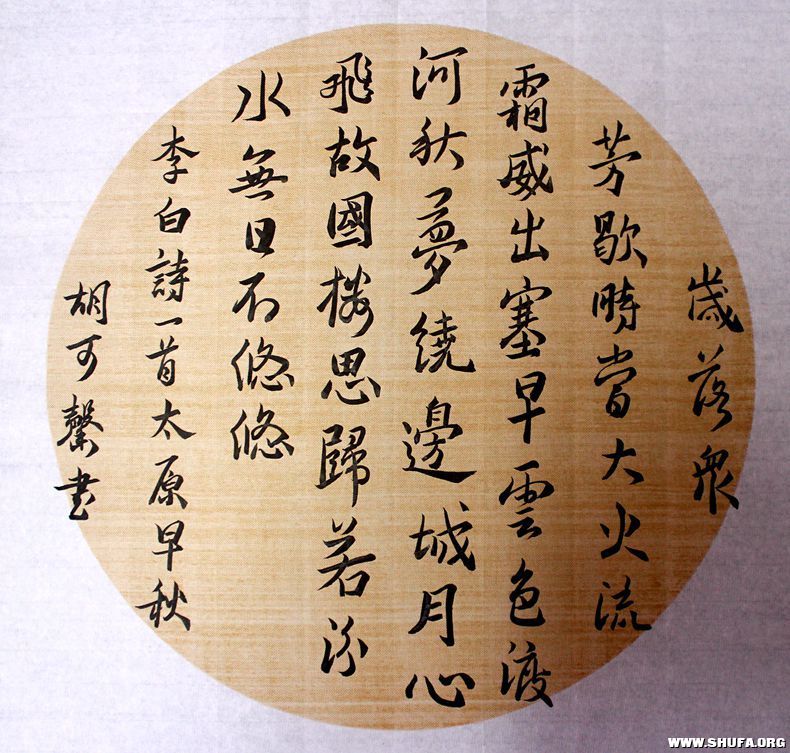 歲落眾
芳歇時當大火流
霜威出塞早雲色渡
河秋夢繞邊城月心
飛故國樓思歸若汾
水無日不悠悠
李白詩一首太原早秋
胡可馨書
WWW.SHUFA.ORG